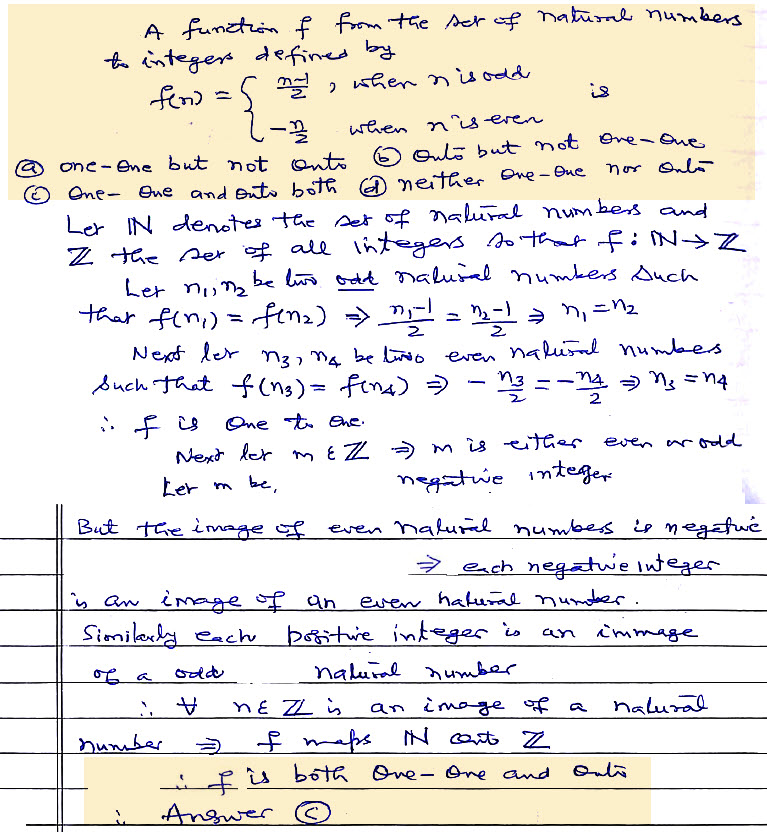 A function f from the set of natural numbers
to integers defined by
f(n) = { n-1/2 , when n is odd
-n/2 when n is even is
(a) one-one but not onto (b) onto but not one-one
(c) One-One and onto both (d) neither one-one nor onto
Let ℕ denotes the set of natural numbers and
ℤ the set of all integers so that f: ℕ→ℤ
Let n₁, n₂ be two odd natural numbers such
that f(n₁) = f(n₂) ⇒ n₁-1/2 = n₂-1/2 ⇒ n₁ = n₂
Next let n₃, n₄ be two even natural numbers
such that f(n₃) = f(n₄) ⇒ -n₃/2 = -n₄/2 ⇒ n₃ = n₄
∴ f is one to one.
Next let m ε ℤ ⇒ m is either even or odd
Let m be, negative integer
But the image of even natural numbers is negative
⇒ each negative integer
is an image of an even natural number.
Similarly each positive integer is an immage
of a odd natural number
∴ ∀ n ε ℤ is an image of a natural
number ⇒ f maps ℕ onto ℤ
∴ f is both One-One and onto
∴ Answer (c)